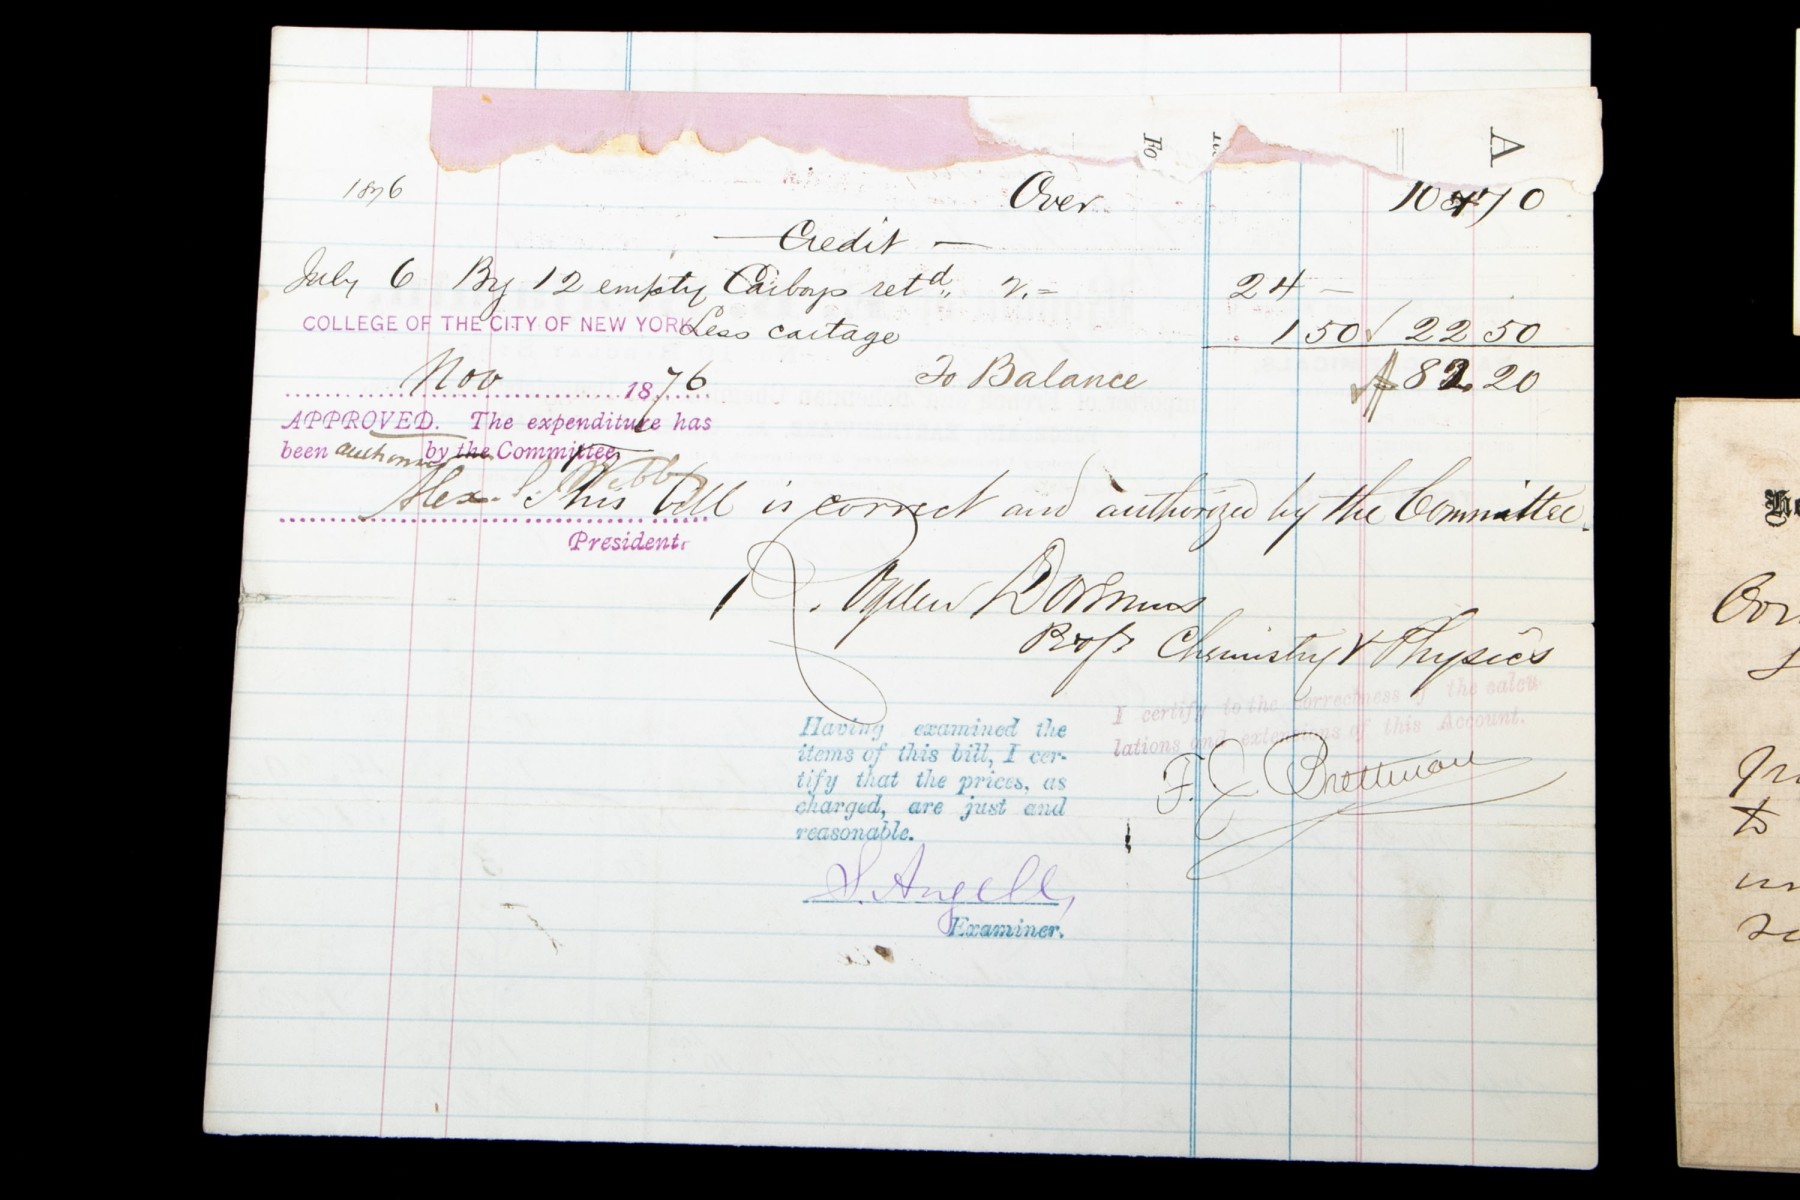 A
Fo
1876 Over 104 70
Credit
July 6 By 12 empty Carboys retd., 2.= 24 —
COLLEGE OF THE CITY OF NEW YORK
Less cartage 1 50 √ 22 50
Nov 1876
To Balance $ 82 20
APPROVED. The expenditure has
been authorized by the Committee,
Alex. S. Webb
President.
This bill is correct and authorized by the Committee.
R. Ogden Doremus
Profr Chemistry & Physics
I certify to the correctness of the calcu-
lations and extensions of this Account.
F. J.
Having examined the
items of this bill, I cer-
tify that the prices, as
charged, are just and
reasonable.
S. Angell,
Examiner.